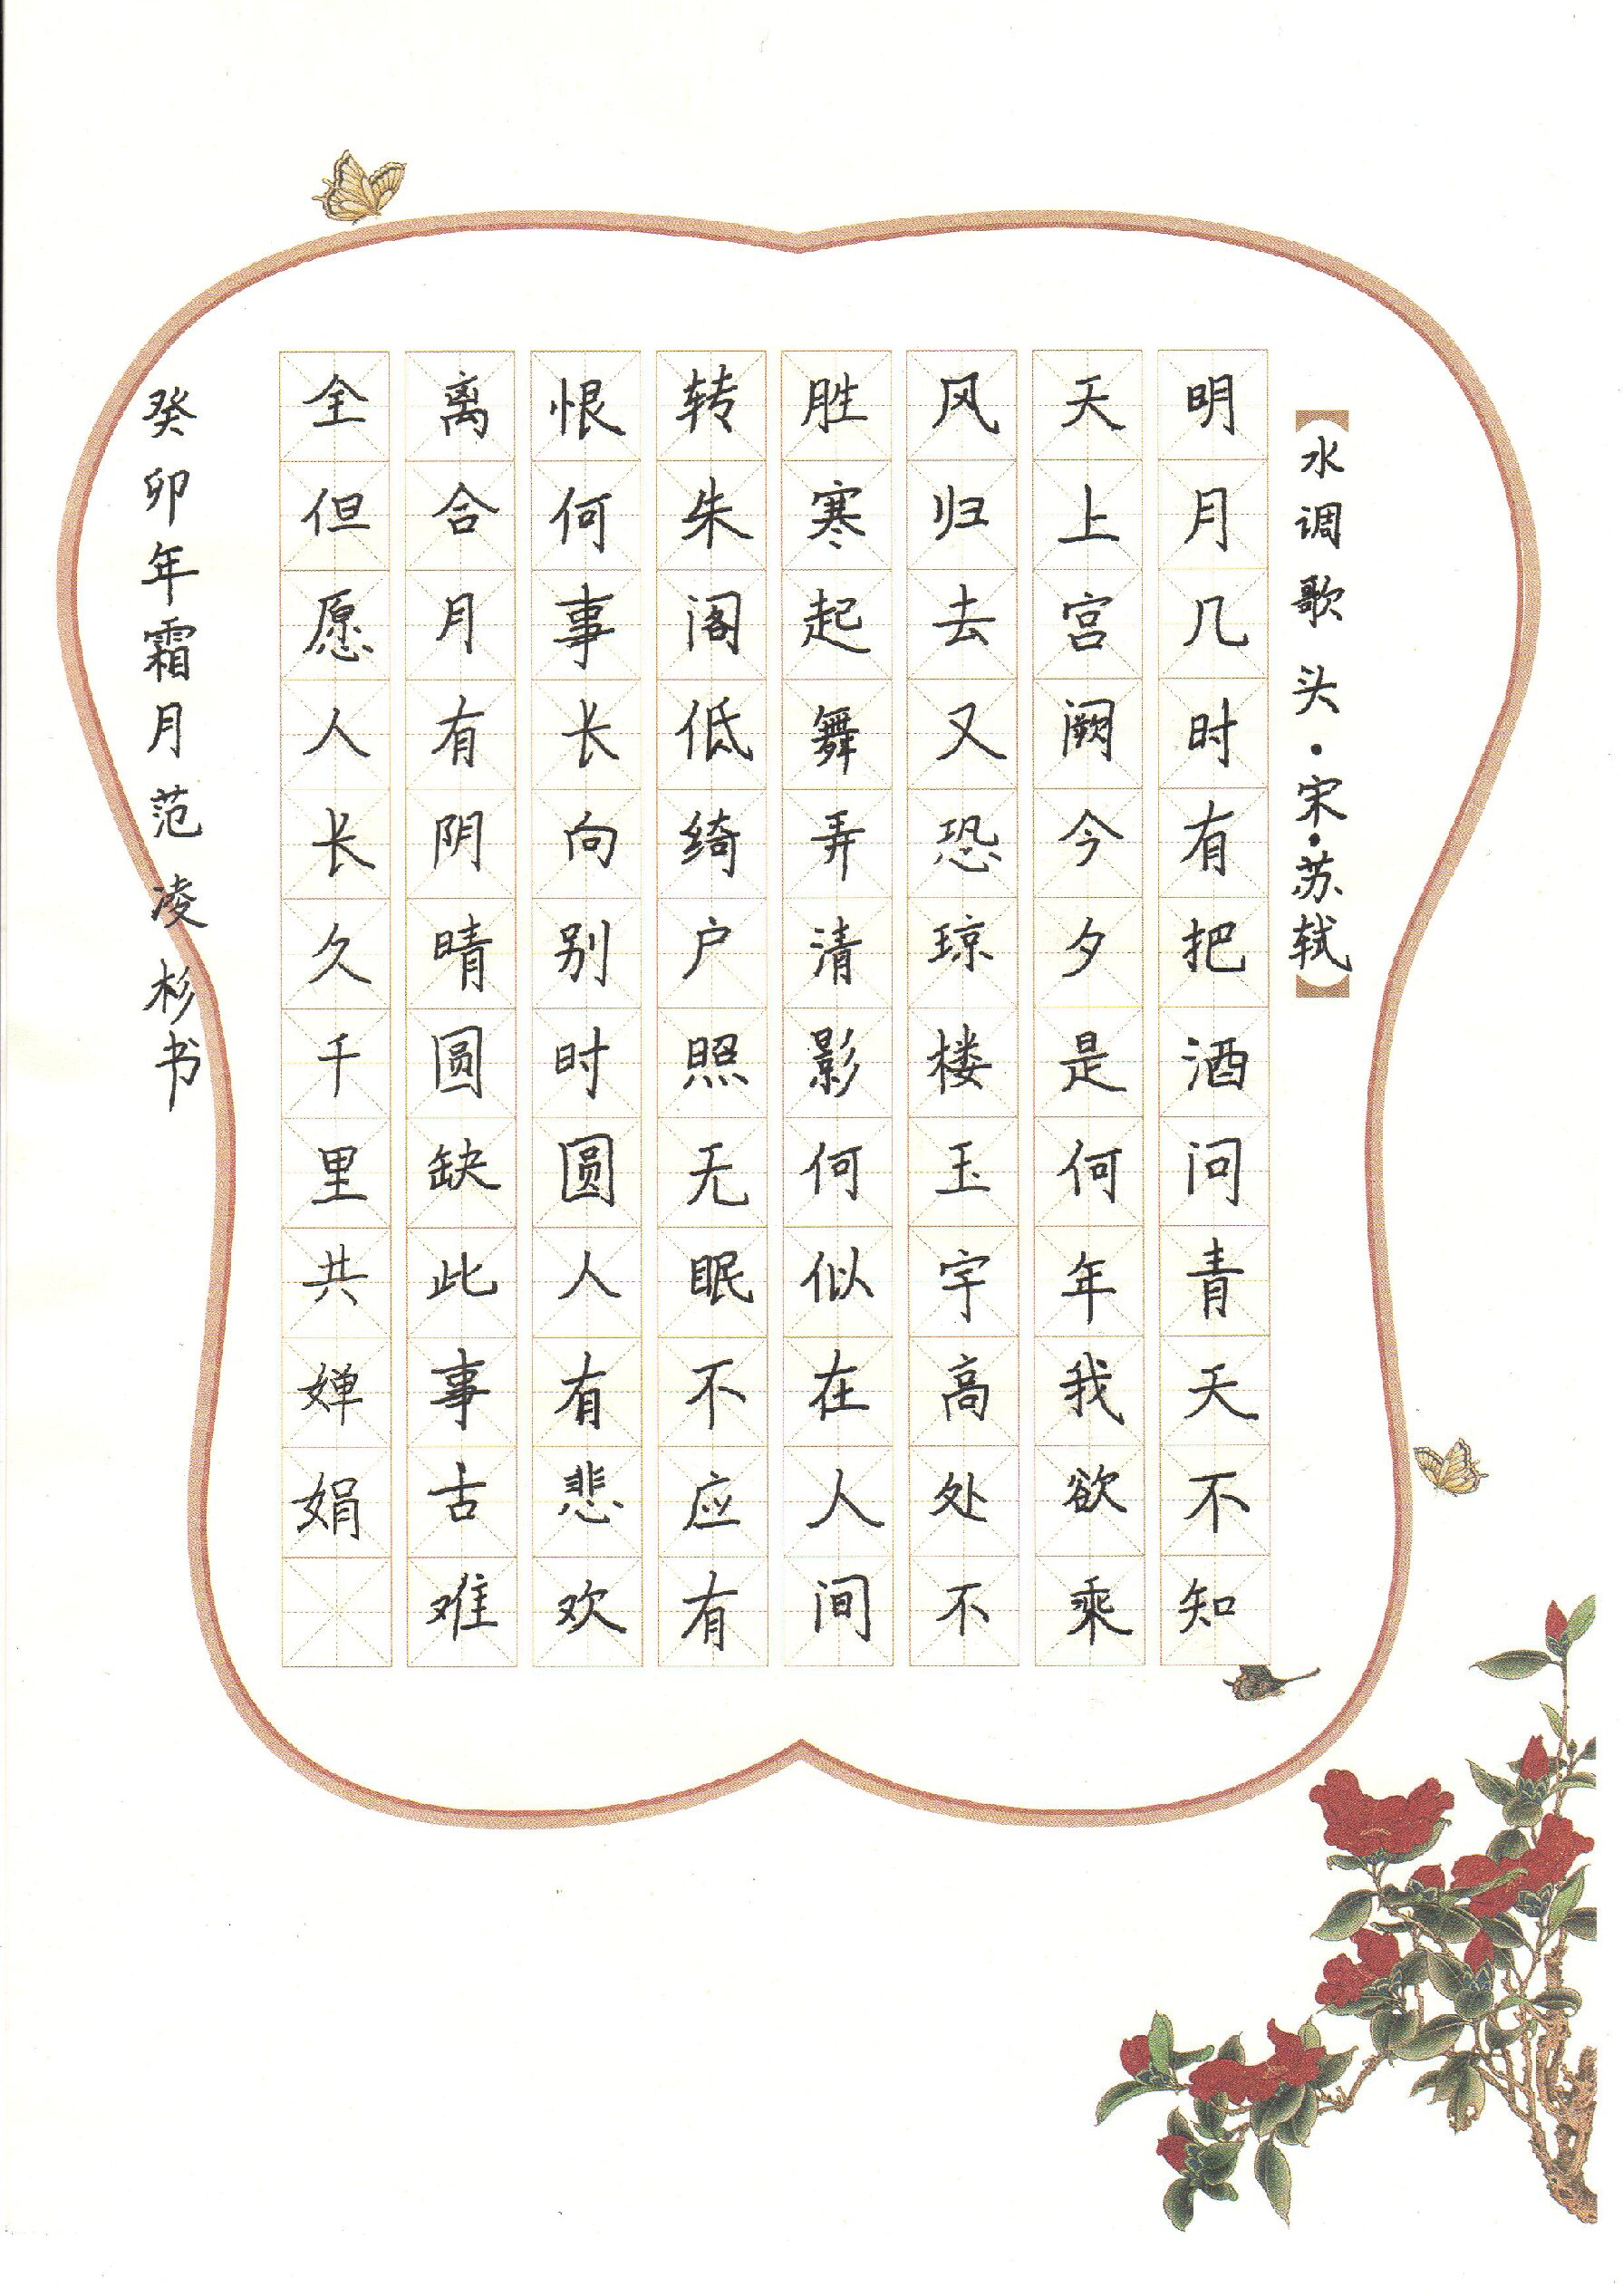 【水调歌头·宋·苏轼】
明月几时有把酒问青天不知
天上宫阙今夕是何年我欲乘
风归去又恐琼楼玉宇高处不
胜寒起舞弄清影何似在人间
转朱阁低绮户照无眠不应有
恨何事长向别时圆人有悲欢
离合月有阴晴圆缺此事古难
全但愿人长久千里共婵娟
癸卯年霜月范凌杉书